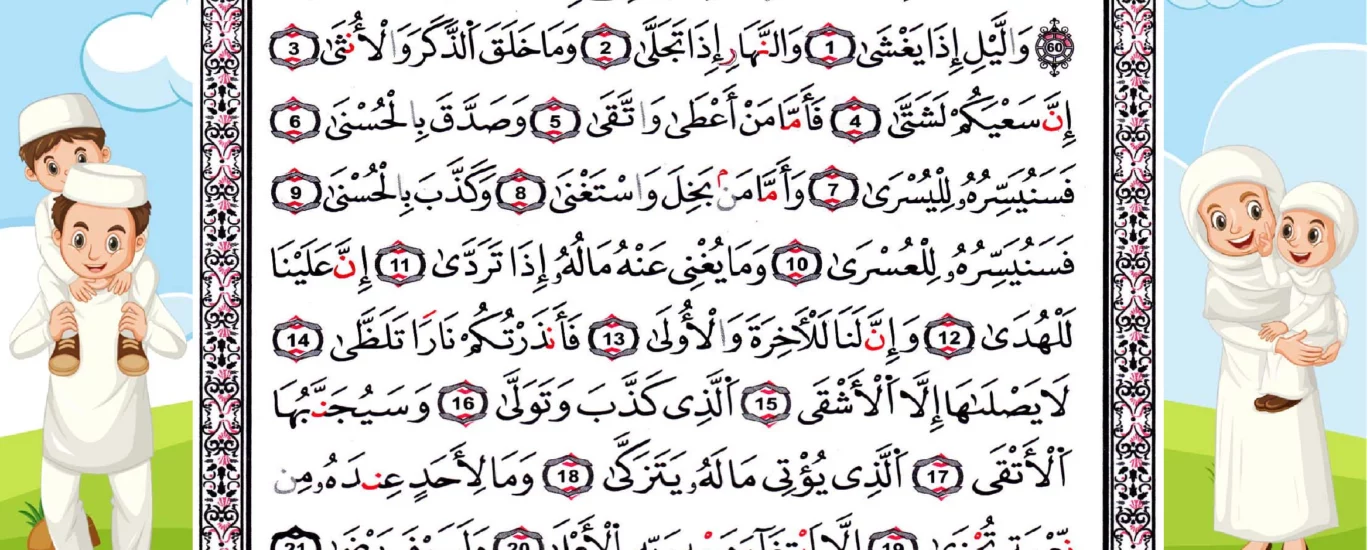 ۞ وَالَّيْلِ إِذَا يَغْشَىٰ 1 وَالنَّهَارِ إِذَا تَجَلَّىٰ 2 وَمَا خَلَقَ ٱلذَّكَرَ وَالْأُنثَىٰ 3
إِنَّ سَعْيَكُمْ لَشَتَّىٰ 4 فَأَمَّا مَنْ أَعْطَىٰ وَاتَّقَىٰ 5 وَصَدَّقَ بِالْحُسْنَىٰ 6
فَسَنُيَسِّرُهُۥ لِلْيُسْرَىٰ 7 وَأَمَّا مَنۢ بَخِلَ وَاسْتَغْنَىٰ 8 وَكَذَّبَ بِالْحُسْنَىٰ 9
فَسَنُيَسِّرُهُۥ لِلْعُسْرَىٰ 10 وَمَا يُغْنِى عَنْهُ مَالُهُۥ إِذَا تَرَدَّىٰ 11 إِنَّ عَلَيْنَا
لَلْهُدَىٰ 12 وَإِنَّ لَنَا لَلْأَخِرَةَ وَالْأُولَىٰ 13 فَأَنذَرْتُكُمْ نَارًا تَلَظَّىٰ 14
لَا يَصْلَىٰهَا إِلَّا ٱلْأَشْقَى 15 ٱلَّذِى كَذَّبَ وَتَوَلَّىٰ 16 وَسَيُجَنَّبُهَا
ٱلْأَتْقَى 17 ٱلَّذِى يُؤْتِى مَالَهُۥ يَتَزَكَّىٰ 18 وَمَا لِأَحَدٍ عِندَهُۥ مِن
نِّعْمَةٍ تُجْزَىٰ 19 إِلَّا ابْتِغَآءَ وَجْهِ رَبِّهِ ٱلْأَعْلَىٰ 20 وَلَسَوْفَ يَرْضَىٰ 21